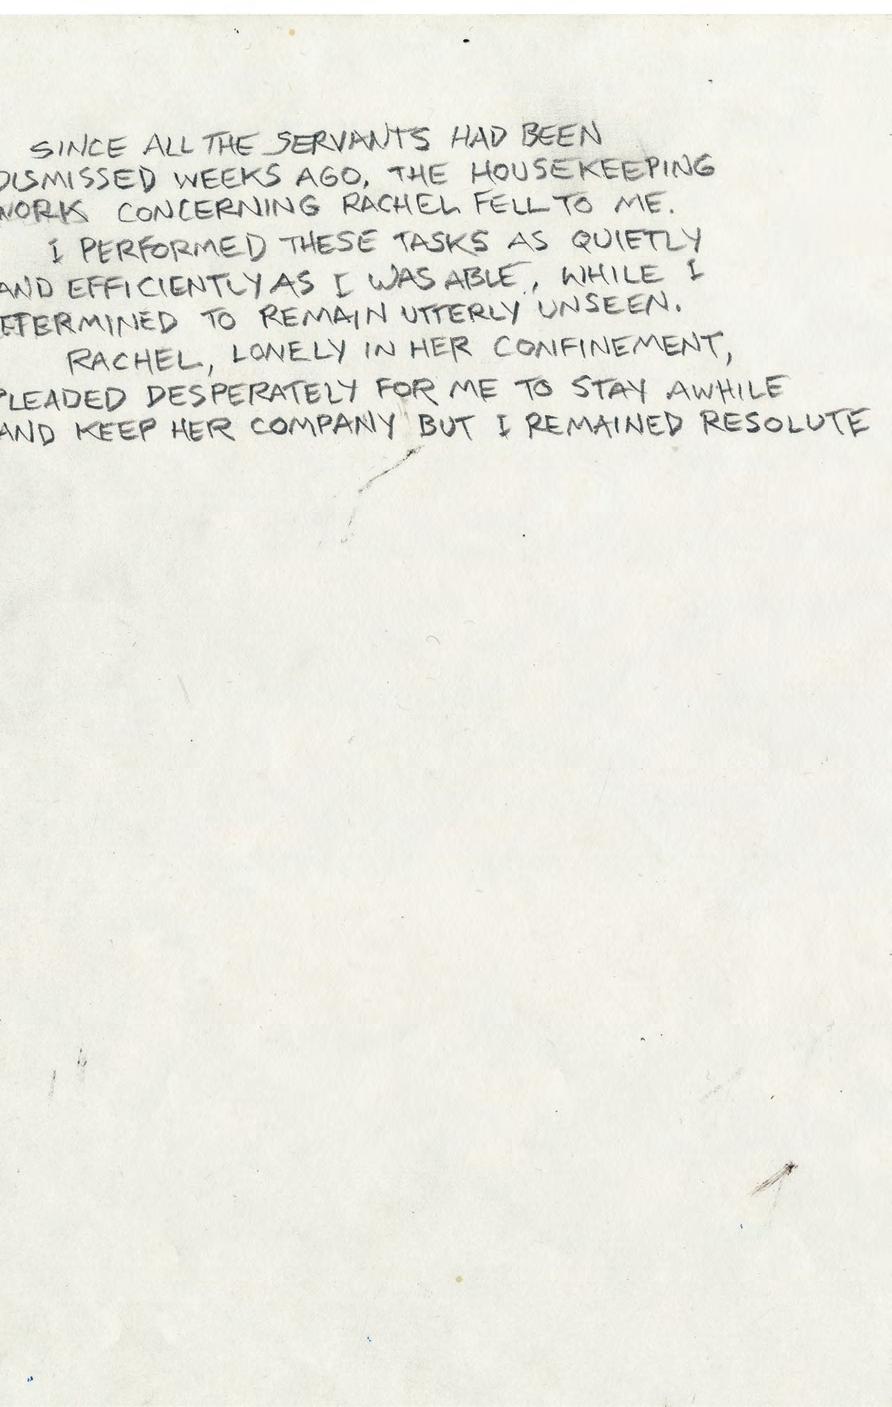 SINCE ALL THE SERVANTS HAD BEEN
DISMISSED WEEKS AGO, THE HOUSEKEEPING
WORK CONCERNING RACHEL FELL TO ME.
I PERFORMED THESE TASKS AS QUIETLY
AND EFFICIENTLY AS I WAS ABLE, WHILE I
ETERMINED TO REMAIN UTTERLY UNSEEN.
RACHEL, LONELY IN HER CONFINEMENT,
PLEADED DESPERATELY FOR ME TO STAY AWHILE
AND KEEP HER COMPANY BUT I REMAINED RESOLUTE